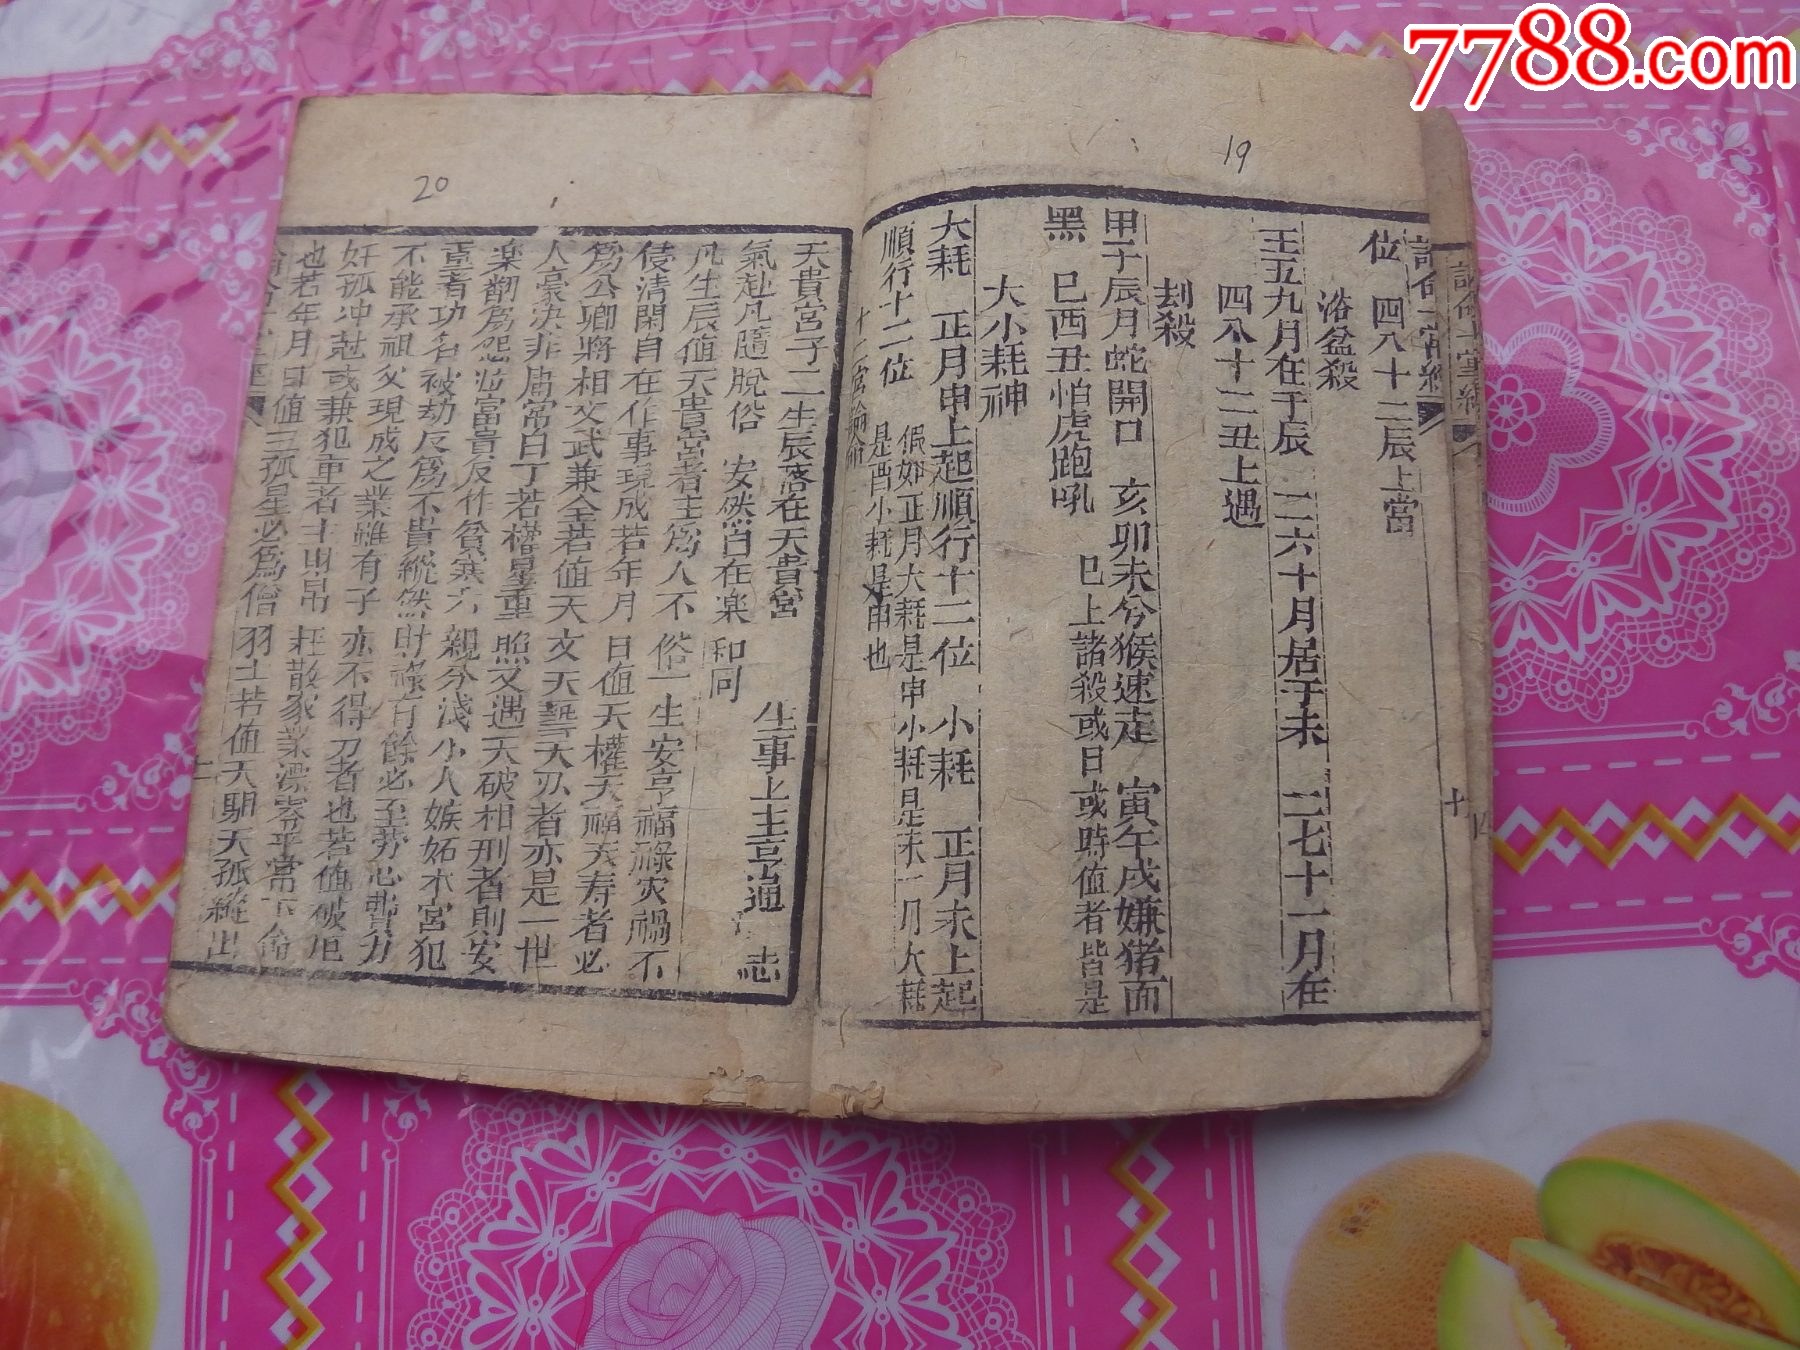 7788.com
19
位 四八十二辰上當
浴盆殺
正五九月在于辰 三六十月居于未 二七十一月在
四八十二丑上遇
刦殺
甲子辰月蛇開口 亥卯未兮猴速走 寅午戌嫌猪面
黑 巳酉丑怕虎跑吼 已上諸殺或日或時值者皆是
大小耗神
大耗 正月申上起順行十二位 小耗 正月未上起
順行十二位 假如正月大耗是申小耗是未一月大耗
是酉小耗是申也
十二宮論命
20
天貴宮子二生辰落在天貴宮 生事上主亨通 志
氣赳凡隨脫俗 安然自在楽 和同
凡生辰值天貴宮者主爲人不俗一生安享福祿災禍不
侵清閑自在作事現成若年月日值天權天福天壽者必
爲公卿將相文武兼全若值天文天誓天刃者亦是一世
人豪决非庸常白丁若權星重照又遇天破相刑者則安
楽翻爲怨泣富貴反作貧寒六親分淺小人嫉妬本宮犯
重者功名被劫反爲不貴縱然財祿有餘必至勞心費力
不能承祖父現成之業雖有子亦不得力者也若值破厄
奸孤冲尅或兼犯重者主
也若年月日值三孤星必爲僧羽士若值天馹天孤縱出